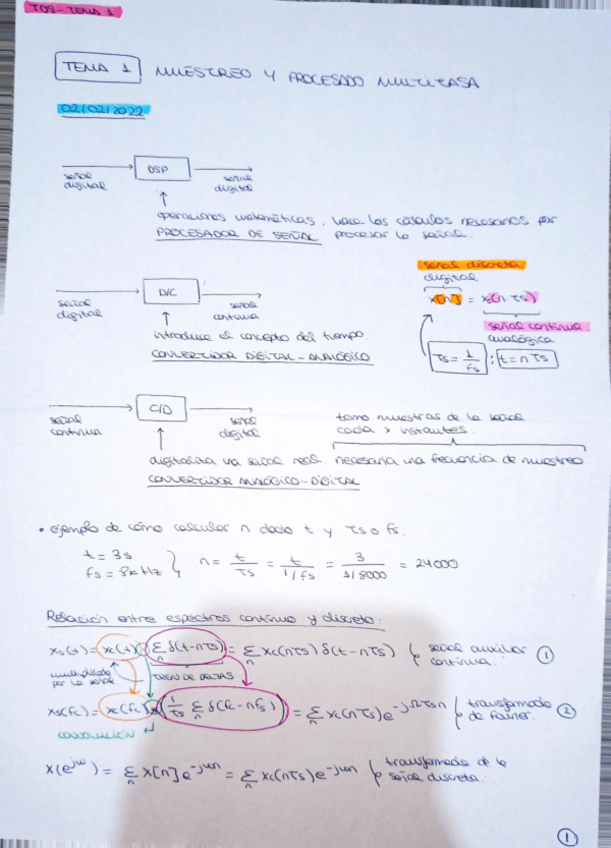 TDS - TEMA 1
TEMA 1 MUESTREO Y PROCESADO MULTITASA
02/02/2022
señal digital
DSP
señal digital
operaciones matemáticas. hace los cálculos necesarios par
PROCESADOR DE SEÑAL procesar la señal.
señal discreta
digital
x[n] = xc(n Ts)
señal continua
analógica
Ts = 1/fs ; t = n Ts
señal digital
D/C
señal continua
introduce el concepto del tiempo.
CONVERTIDOR DIGITAL - ANALÓGICO
señal continua
C/D
señal digital
tomo muestras de la señal
cada x instantes.
digitaliza una señal real. necesaria una frecuencia de muestreo
CONVERTIDOR ANALÓGICO - DIGITAL
• ejemplo de cómo calcular n dado t y Ts o fs.
t = 3s
fs = 8kHz } n = t/Ts = t/1/fs = 3/1/8000 = 24000
Relación entre espectros continuo y discreto:
xs(t) = xc(t) · Σn δ(t - nTs) = Σn xc(nTs) δ(t - nTs) señal auxiliar continua. 1
multiplicado por la señal
TREN DE DELTAS
xs(fc) = xc(fc) * (1/Ts Σn δ(fc - nfs)) = Σn xc(nTs) e^-jΩTsn transformada de Fourier. 2
CONVOLUCIÓN
X(e^jω) = Σn x[n] e^-jωn = Σn xc(nTs) e^-jωn transformada de la señal discreta.
1